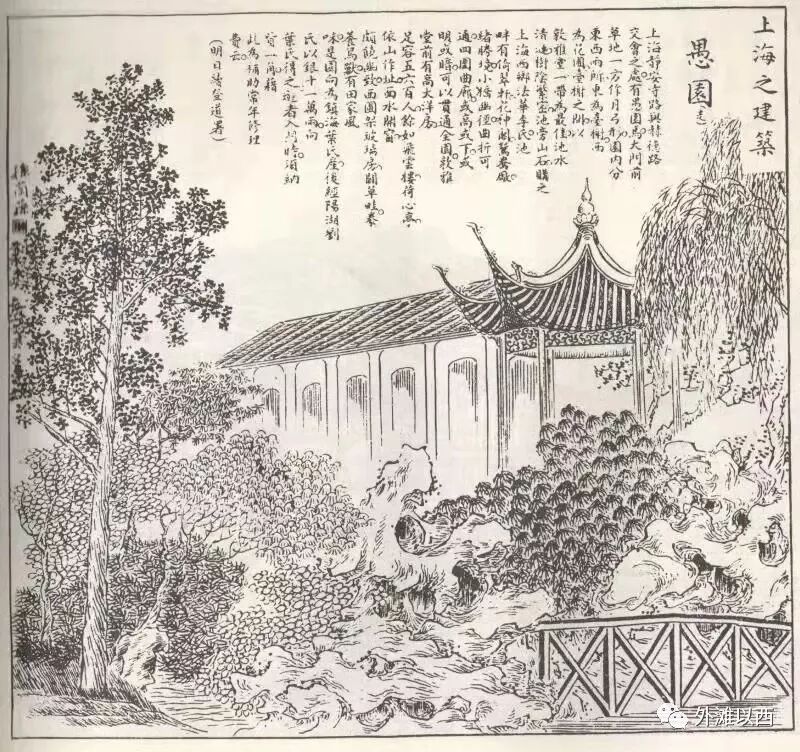 上海之建築
愚園(志)
上海静安寺路與赫德路
交會之處有愚園焉大門前
草地一方作月弓形園内分
東西兩所東為臺榭西
為花園臺榭之勝以
敦雅堂一帶為最佳池水
清漣樹陰繁密池旁山石購之
上海西鄉法華李氏池
畔有倚翠軒花神閣鴛鴦廳
諸勝境小橋幽徑曲折可
通四圍曲廊或高或下或
明或暗可以貫通全園敦雅
堂前有高大洋房
足容五六百人餘如飛雲樓荷心亭
依山作址面水開窗
頗饒幽致西園架玻璃房闢草畦
養鳥獸有田家風
味是園向為鎮海葉氏產後經陽湖劉
氏以銀十一萬兩向
葉氏得之遊者入門時須納
資一角藉
此為補助常年修理
費云
(明日請登道署)
外滩以西